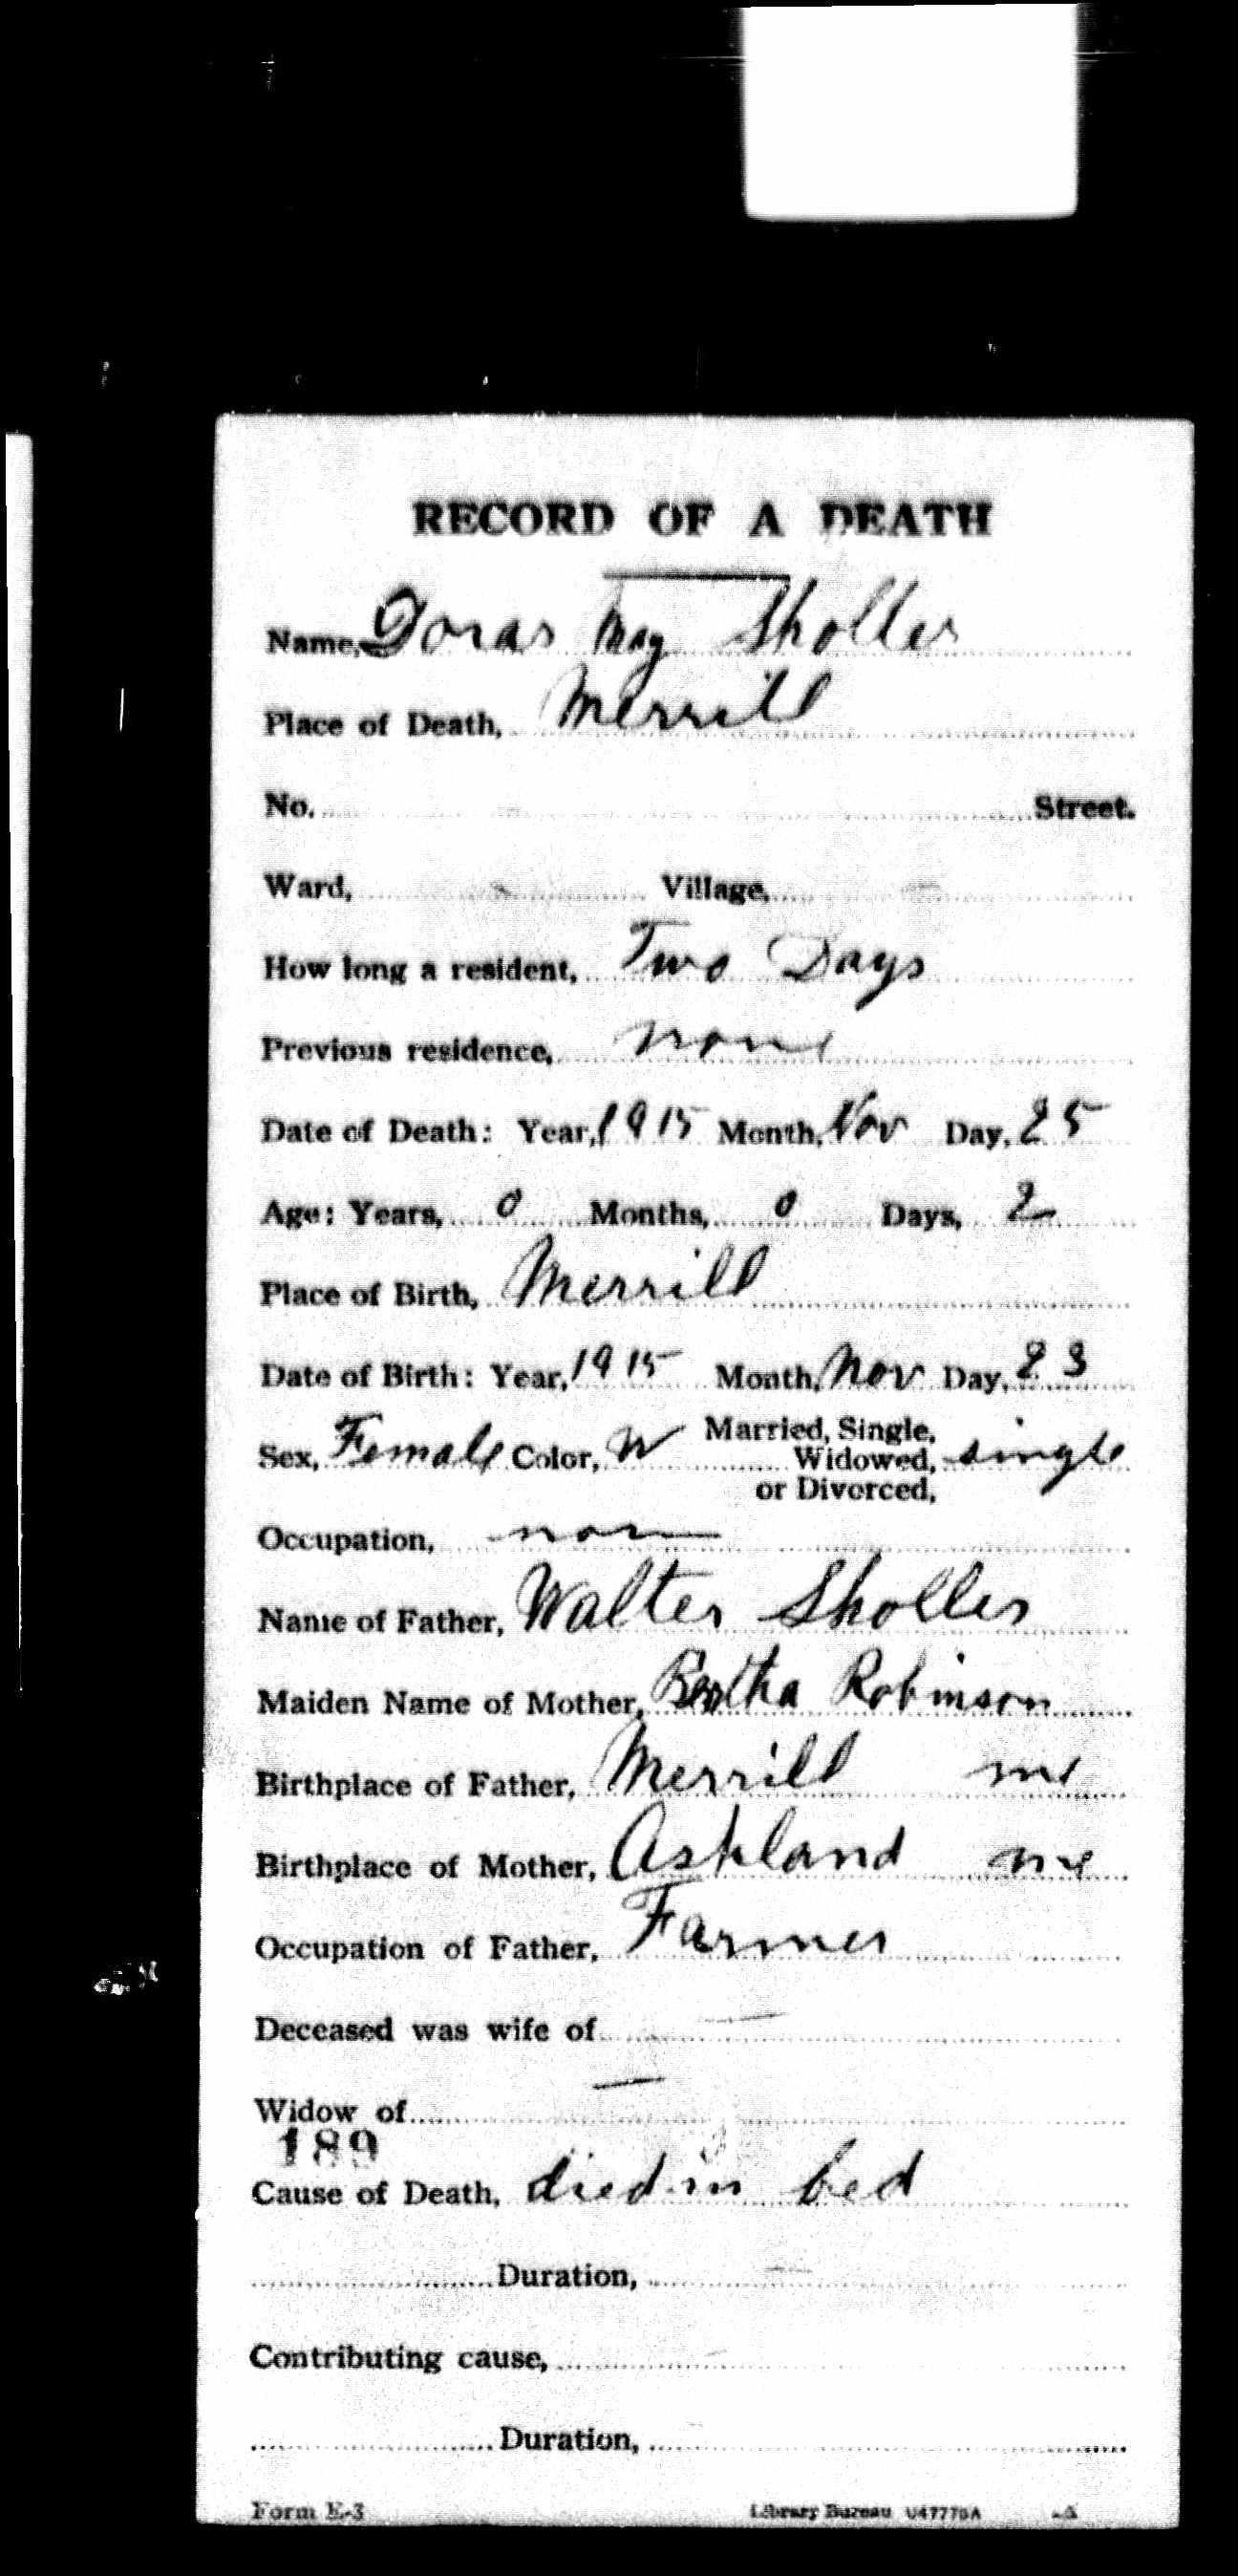 RECORD OF A DEATH
Name, Doras May Sholler
Place of Death, Merrill
No. Street.
Ward, Village,
How long a resident, Two Days
Previous residence, none
Date of Death: Year, 1915 Month, Nov Day, 25
Age: Years, 0 Months, 0 Days, 2
Place of Birth, Merrill
Date of Birth: Year, 1915 Month, Nov Day, 23
Sex, Female Color, W Married, Single, Widowed, or Divorced, single
Occupation, non
Name of Father, Walter Sholler
Maiden Name of Mother, Bertha Robinson
Birthplace of Father, Merrill me
Birthplace of Mother, Ashland me
Occupation of Father, Farmer
Deceased was wife of —
Widow of —
189
Cause of Death, died in bed
Duration, —
Contributing cause,
Duration,
Form E-3 Library Bureau